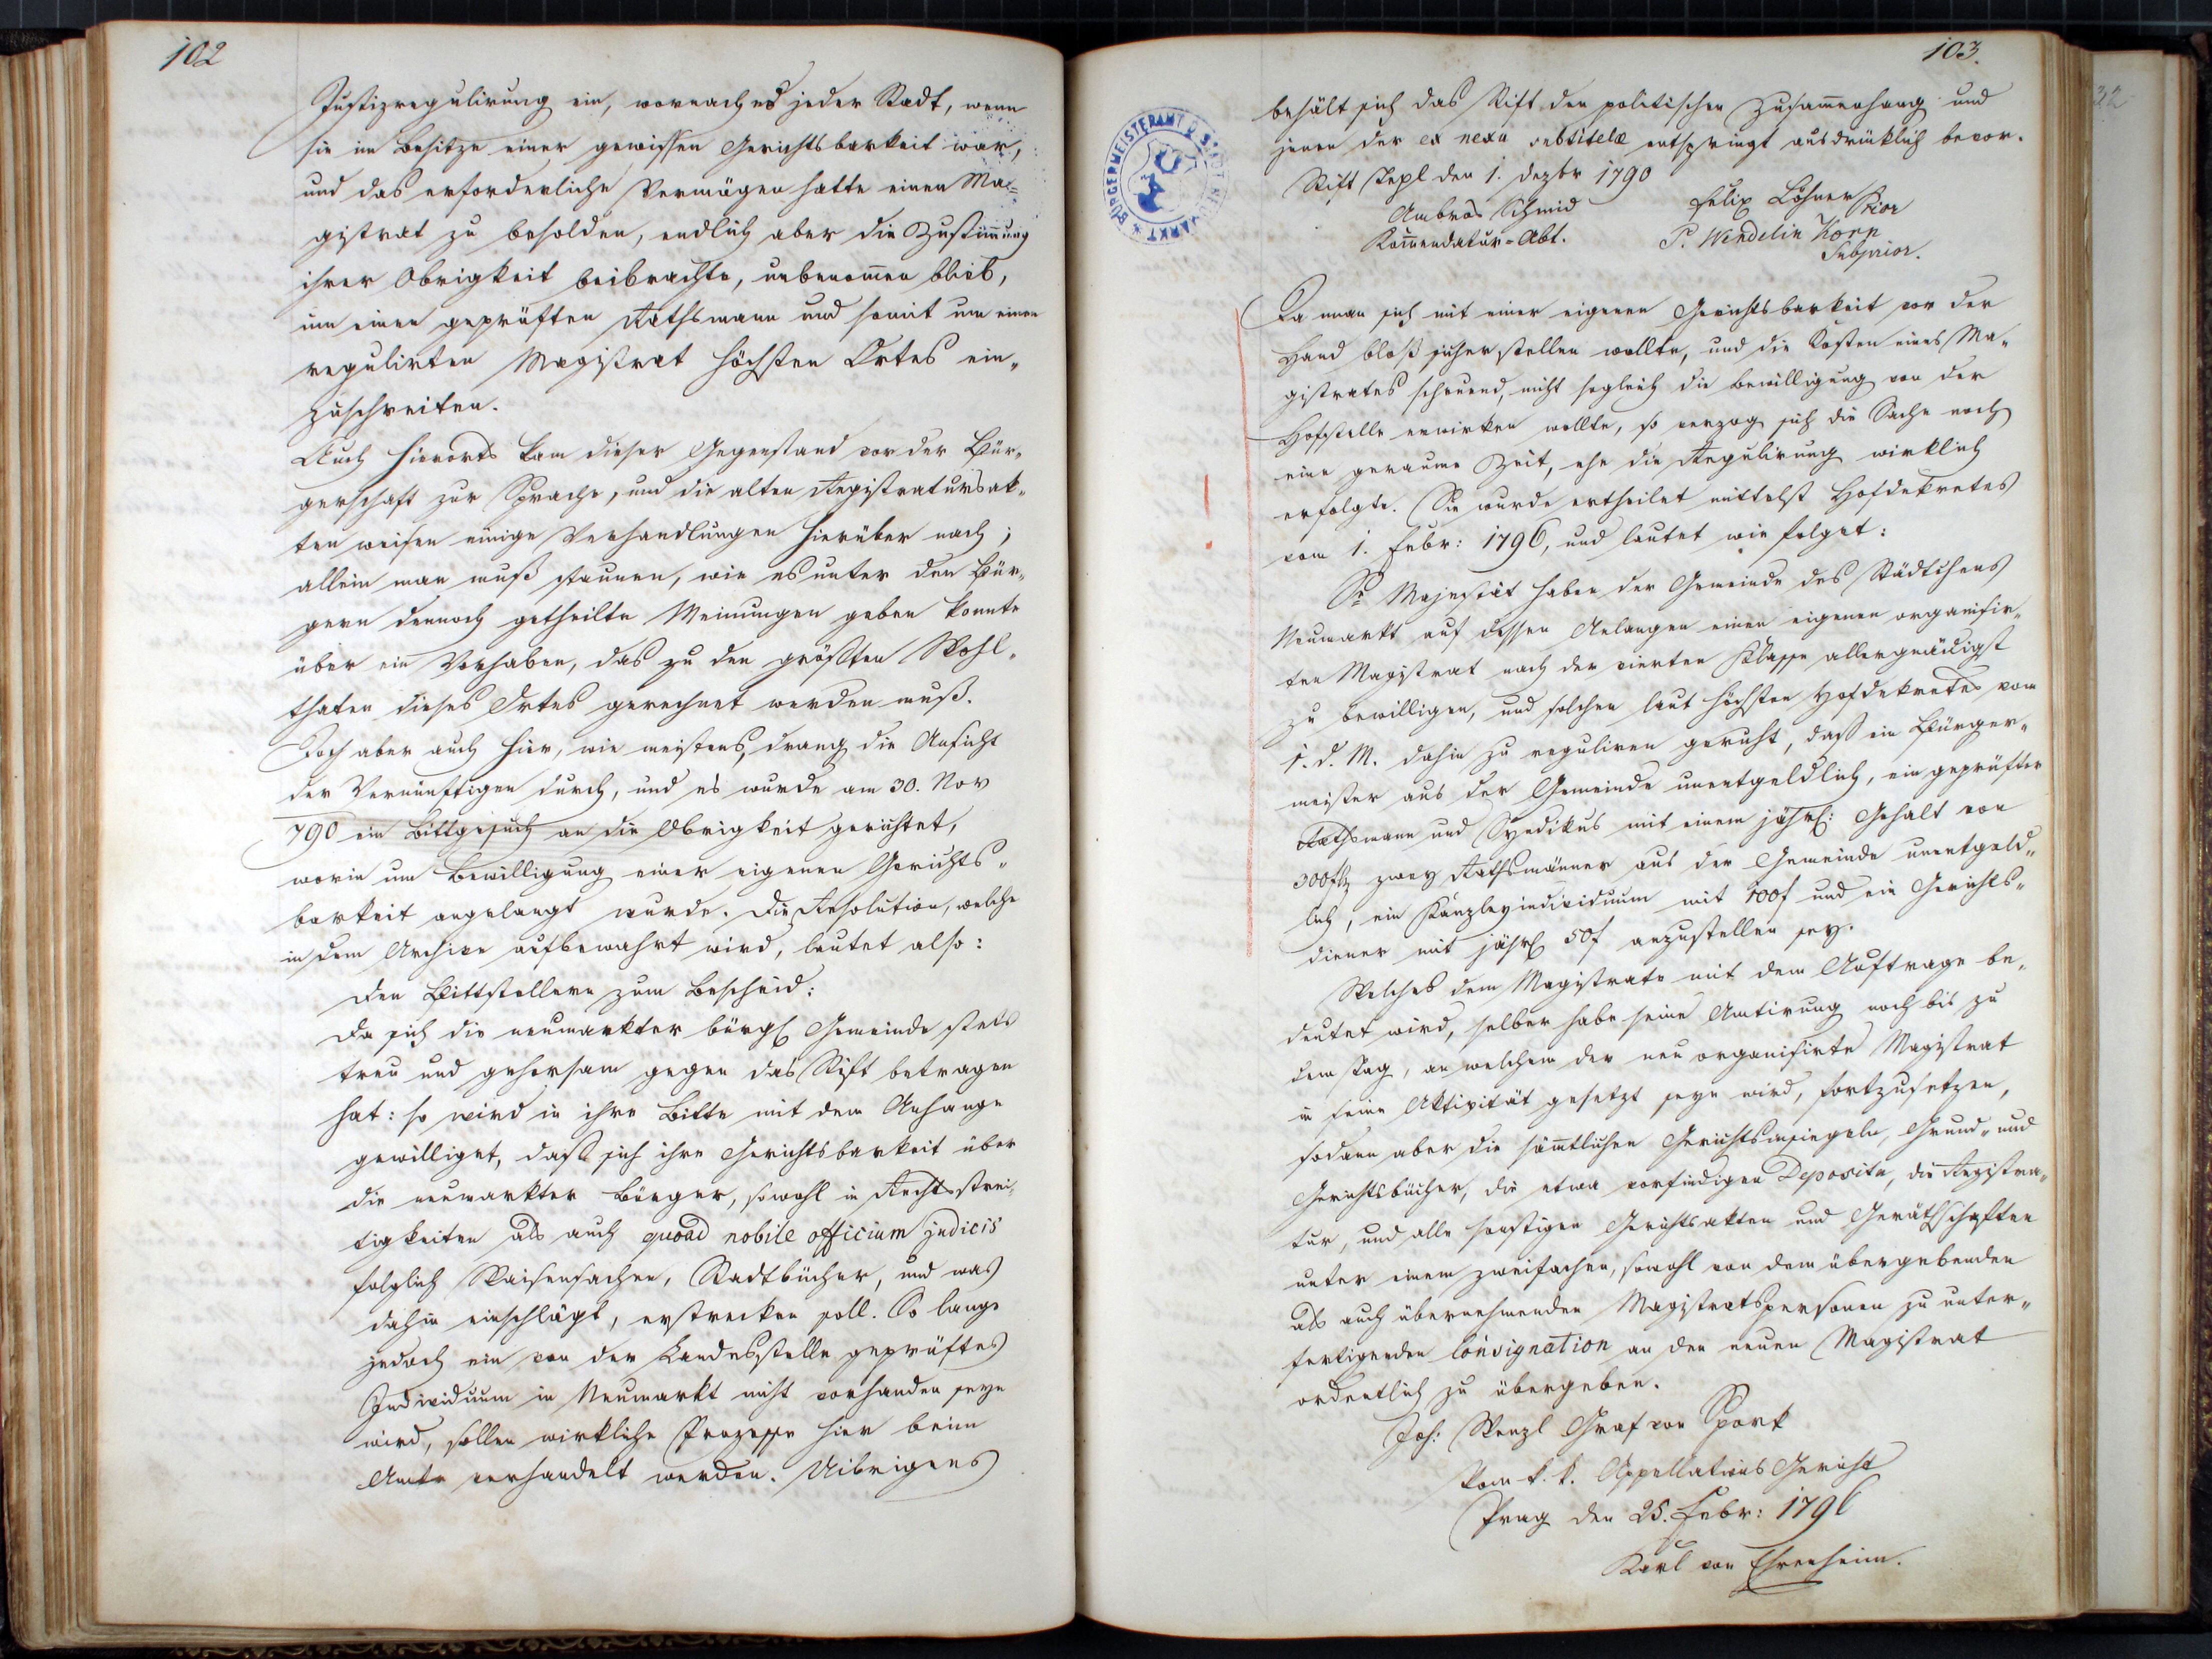 102
Justizregulirung ein, wornach es jeder Stadt, wenn
sie im Besitze einer gewissen Gerichtsbarkeit war,
und das erforderliche Vermögen hatte einen Ma-
gistrat zu besolden, endlich aber die Zustim̄ung
ihrer Obrigkeit beibrachte, unbenom̄en blieb,
um einen geprüften Rathsmann und somit um einen
regulirten Magistrat höchsten Ortes ein-
zuschreiten.
Auch hierorts kam dieser Gegenstand vor der Bür-
gerschaft zur Sprache, und die alten Registratursak-
ten weisen einige Verhandlungen hierüber nach;
allein man muß staunen, wie es unter den Bür-
gern dennoch getheilte Meinungen geben konnte
über ein Vorhaben, das zu den größten Wohl-
thaten dieses Ortes gerechnet werden muß.
Doch aber auch hier, wie meistens, drang die Ansicht
der Vernünftigen durch, und es wurde am 30. Nov
790 ein Bittgesuch an die Obrigkeit gerichtet,
worin um Bewilligung einer eigenen Gerichts-
barkeit angelangt wurde. Die Resolution, welche
in dem Archive aufbewahrt wird, lautet also:
Den Bittstellern zum Bescheid:
Da sich die neumarkter bürgl Gemeinde stets
treu und gehorsam gegen das Stift betragen
hat: so wird in ihre Bitte mit dem Anhange
gewilliget, daß sich ihre Gerichtsbarkeit über
die neumarkter Bürger, sowohl in Rechtsstrei-
tigkeiten als auch quoad nobile officium judicis
folglich Waisensachen, Stadtbücher, und was
dahin einschlägt, erstrecken soll. So lange
jedoch ein von der Landesstelle geprüftes
Individuum in Neumarkt nicht vorhanden seyn
wird, sollen wirkliche Prozesse hier beim
Amte verhandelt werden. Uibrigens
103.
BÜRGERMEISTERAMT D. STADT NEUMARKT
behält sich das Stift den politischen Zusam̄enhang und
jenen der ex nexu subtitelæ entspringt ausdrücklich bevor.
Stift Tepl den 1. Dezbr 1790
Ambros Schmid
Kom̄endatur-Abt.
Felix Löhner Prior
P. Wendelin Korn
Subprior.
Da man sich mit einer eigenen Gerichtsbarkeit vor der
Hand bloß sicherstellen wollte, und die Kosten eines Ma-
gistrates scheuend, nicht sogleich die Bewilligung von der
Hofstelle erwirken wollte, so verzog sich die Sache noch
eine geraume Zeit, ehe die Regulirung wirklich
erfolgte. Sie wurde ertheilet mittelst Hofdekretes
vom 1. Febr: 1796, und lautet wie folget:
Se Majestät haben der Gemeinde des Städtchens
Neumarkt auf dessen Anlangen einen eigenen organisir-
ten Magistrat nach der vierten Klasse allergnädigst
zu bewilligen, und solchen laut höchsten Hofdekretes vom
1. d. M. dahin zu reguliren geruht, daß ein Bürger-
meister aus der Gemeinde unentgeldlich, ein geprüfter
Rathsmann und Syndikus mit einem jährl: Gehalt von
300 fl, zwey Rathsmänner aus der Gemeinde unentgeld-
lich, ein Kanzleyindividuum mit 100 f und ein Gerichts-
diener mit jährl 50 f anzustellen sey.
Welches dem Magistrate mit dem Auftrage be-
deutet wird, selber habe seine Amtirung noch bis zu
dem Tag, an welchem der neu organisirte Magistrat
in seine Aktivität gesetzt seyn wird, fortzusetzen,
sodann aber die sämtlichen Gerichtsinsiegeln, Grund- und
Gerichtsbücher, die etwa vorfindigen Deposita, die Registra-
tur, und alle sonstigen Gerichtsakten und Geräthschaften
unter einem zweifachen, sowohl von dem übergebenden
als auch übernehmenden Magistratspersonen zu unter-
fertigenden Consignation an den neuen Magistrat
ordentlich zu übergeben.
Joh: Wenzl Graf von Spork
Vom k. k. Appellations Gericht
Prag den 25. Febr: 1796
Karl von Ehrenheim.